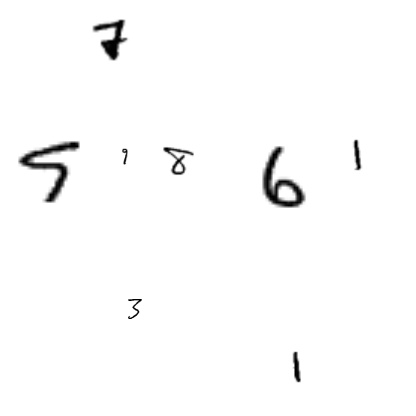 7
5 9 8 6 1
3
1